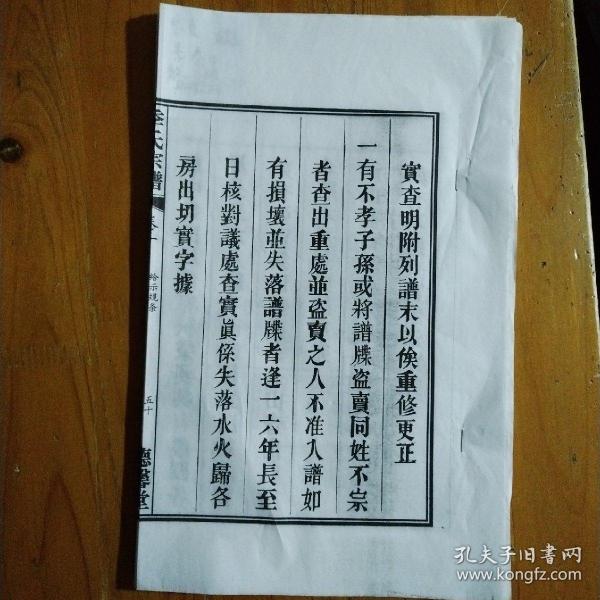 實查明附列譜末以俟重修更正
一有不孝子孫或將譜牒盜賣同姓不宗
者查出重處並盜賣之人不准入譜如
有損壞並失落譜牒者逢一六年長至
日核對議處查實眞係失落水火歸各
房出切實字據
季氏宗譜
卷一
給示規条
五十
德馨堂
孔夫子旧書网
www.kongfz.com